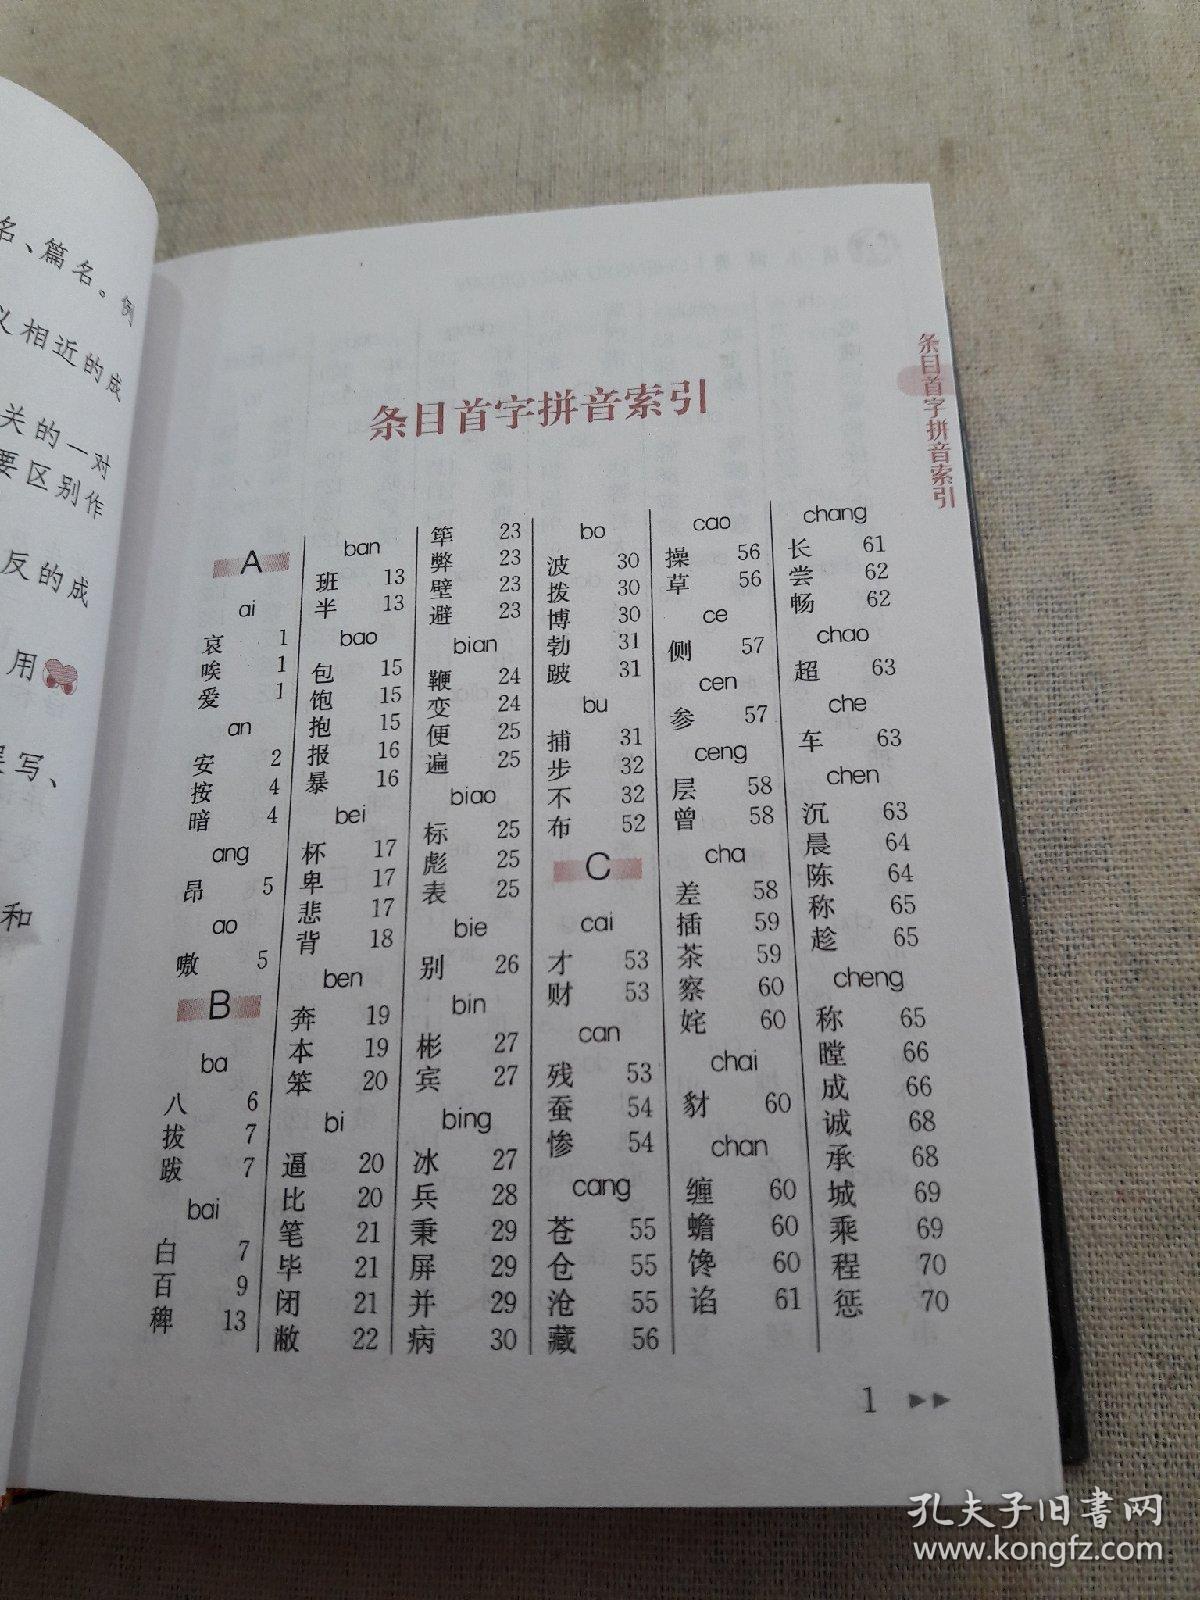 名、篇名。例
义相近的成
关的一对
要区别作
反的成
用
写、
和
条目首字拼音索引
条目首字拼音索引
A
ai
哀 1
唉 1
爱 1
an
安 2
按 4
暗 4
ang
昂 5
ao
嗷 5
B
ba
八 6
拔 7
跋 7
bai
白 7
百 9
稗 13
ban
班 13
半 13
bao
包 15
饱 15
抱 15
报 16
暴 16
bei
杯 17
卑 17
悲 17
背 18
ben
奔 19
本 19
笨 20
bi
逼 20
比 20
笔 21
毕 21
闭 21
敝 22
筚 23
弊 23
壁 23
避 23
bian
鞭 24
变 24
便 25
遍 25
biao
标 25
彪 25
表 25
bie
别 26
bin
彬 27
宾 27
bing
冰 27
兵 28
秉 29
屏 29
并 29
病 30
bo
波 30
拨 30
博 30
勃 31
跛 31
bu
捕 31
步 32
不 32
布 52
C
cai
才 53
财 53
can
残 53
蚕 54
惨 54
cang
苍 55
仓 55
沧 55
藏 56
cao
操 56
草 56
ce
侧 57
cen
参 57
ceng
层 58
曾 58
cha
差 58
插 59
茶 59
察 60
姹 60
chai
豺 60
chan
缠 60
蟾 60
馋 60
谄 61
chang
长 61
尝 62
畅 62
chao
超 63
che
车 63
chen
沉 63
晨 64
陈 64
称 65
趁 65
cheng
称 65
瞠 66
成 66
诚 68
承 68
城 69
乘 69
程 70
惩 70
1
孔夫子旧书网
www.kongfz.com